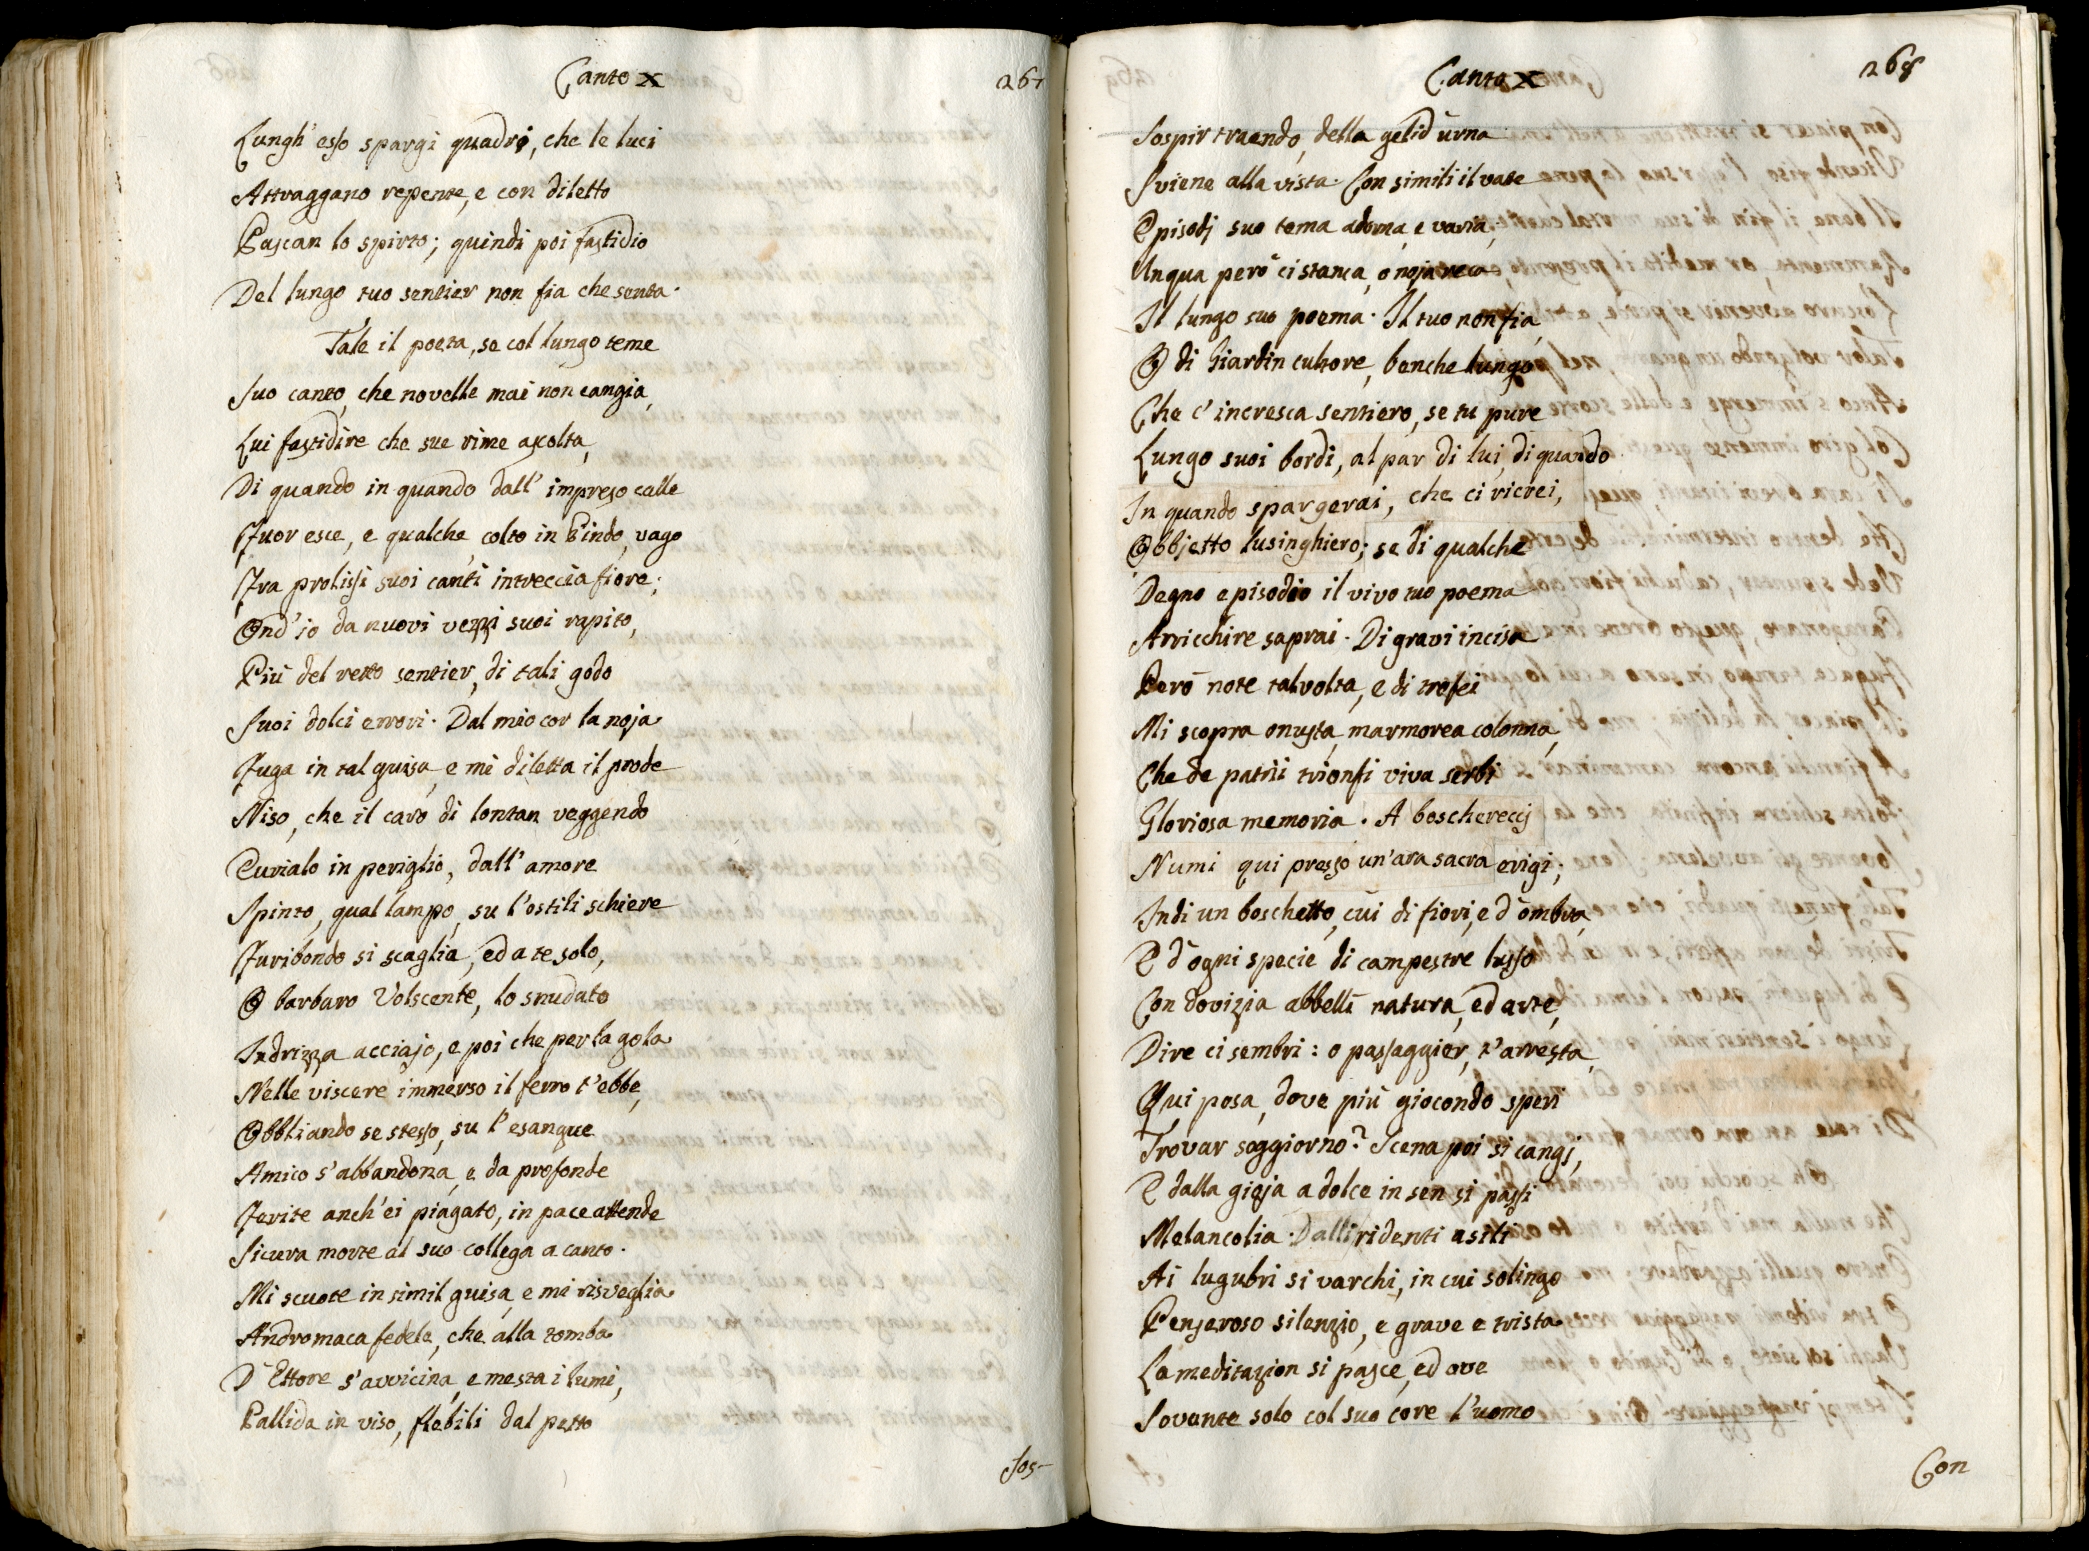 Canto X
267
Lungh' esso spargi quadri, che le luci
Attraggano repente, e con diletto
Pascan lo spirto; quindi poi fastidio
Del lungo tuo sentier non fia che senta.
Tale il poeta, se col lungo teme
Suo canto, che novelle mai non cangia,
Lui fastidire che sue rime ascolta,
Di quando in quando dall' impreso calle
Fuor esce, e qualche, colto in Pindo, vago
Fra prolissi suoi canti intreccia fiore;
Ond' io da nuovi vezzi suoi rapito,
Più del retto sentier, di tali godo
Suoi dolci errori. Dal mio cor la noja
Fuga in tal guisa, e mi diletta il prode
Niso, che il caro di lontan veggendo
Eurialo in periglio, dall' amore
Spinto, qual lampo, su l'ostili schiere
Furibondo si scaglia, ed a te solo,
O barbaro Volscente, lo snudato
Indrizza acciajo, e poi che per la gola
Nelle viscere immerso il ferro t'ebbe,
Obbliando se stesso, su l' esangue
Amico s'abbandona, e da profonde
Ferite anch' ei piagato, in pace attende
Sicura morte al suo collega a canto.
Mi scuote in simil guisa, e mi risveglia
Andromaca fedele, che alla tomba
D' Ettore s'avvicina, e mesta i lumi,
Pallida in viso, flebili dal petto
Sos-
Canto X
268
Sospir traendo, della gelid' urna
Sviene alla vista. Con simili il vate
Episodj suo tema adorna, e varia,
Unqua però ci stanca, o noja reca
Il lungo suo poema. Il tuo non fia,
O di Giardin cultore, benche lungo
Che c' incresca sentiero, se tu pure
Lungo suoi bordi, al par di lui, di quando
In quando spargerai, che ci ricrei,
Obbjetto lusinghiero; se di qualche
Degno episodio il vivo tuo poema
Arricchire saprai. Di gravi incisa
Però note talvolta, e di trofei
Mi scopra onusta, marmorea colonna,
Che de patrii trionfi viva serbi
Gloriosa memoria. A boscherecij
Numi qui presso un'ara sacra erigi;
Indi un boschetto, cui di fiori, e d' ombra,
E d' ogni specie di campestre lusso
Con dovizia abbellì natura, ed arte,
Dire ci sembri: o passaggier, t'arresta,
Qui posa, dove più giocondo speri
Trovar soggiorno? Scena poi si cangj,
E dalla gioja a dolce in sen si passi
Melancolia. Dalli ridenti asili
Ai lugubri si varchi, in cui solingo
Penseroso silenzio, e grave e trista
La meditazion si pasce, ed ove
Sovente solo col suo core l'uomo
Con